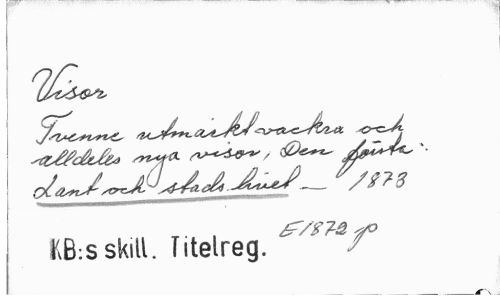 Visor
Tvenne utmärkt vackra och
alldeles nya visor, Den första:
Lant och stads livet _ 1873
E1872 p
KB:s skill. Titelreg.